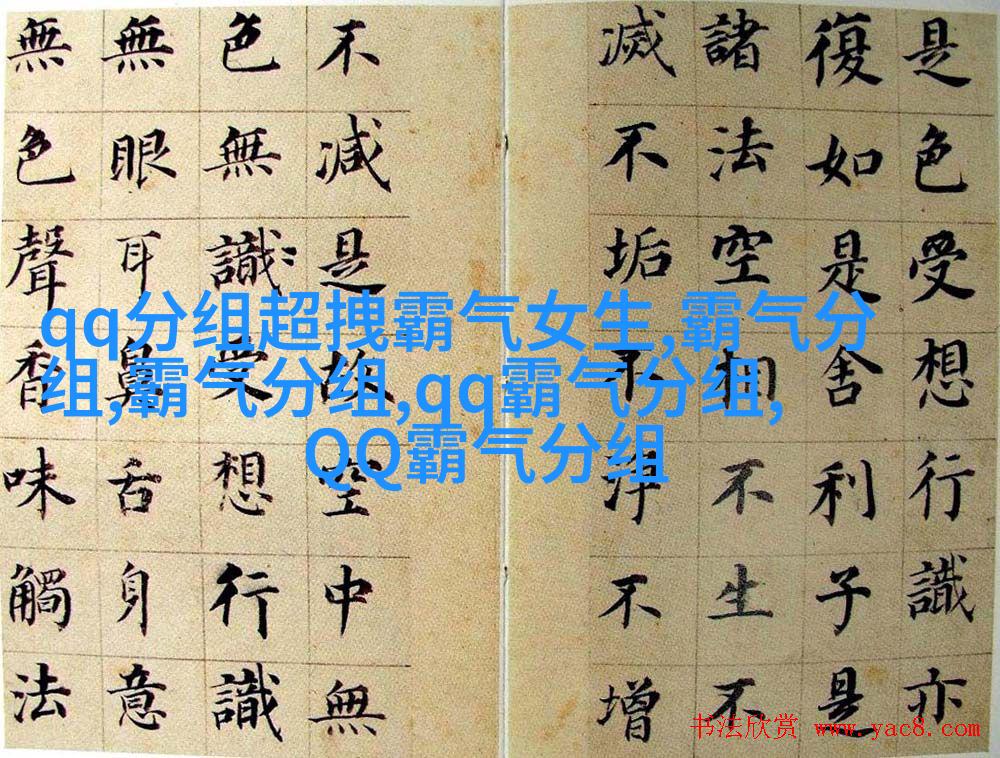 是色受想行識亦
復如是舍利子是
諸法空相不生不
滅不垢不淨不增
不減是故空中無
色無識受想行識
無眼耳鼻舌身意
無色聲香味觸法
qq分组超拽霸气女生,霸气分
组,霸气分组,qq霸气分组,
QQ霸气分组
书法欣赏 www.yac8.com